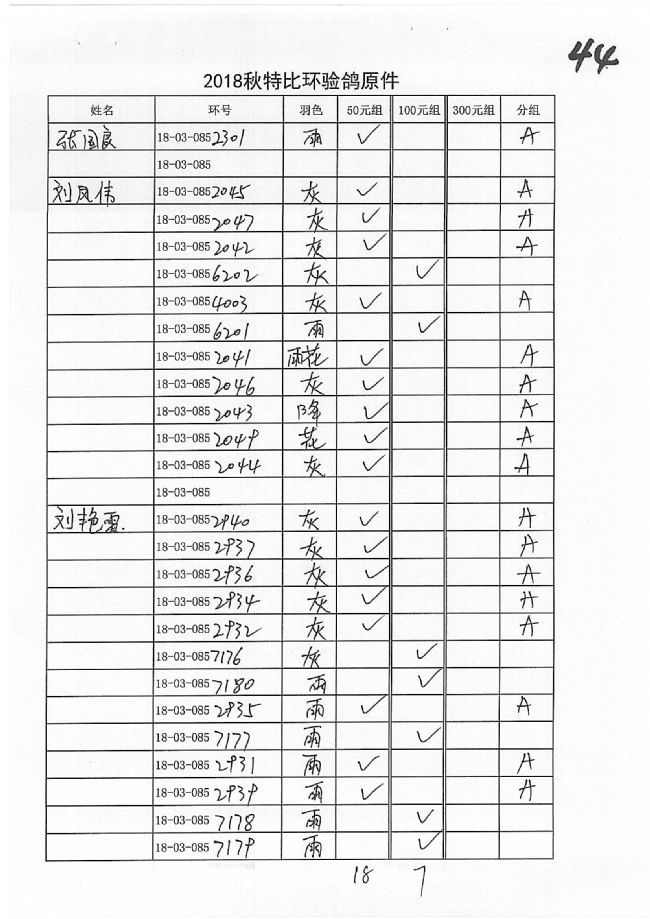 44
2018秋特比环验鸽原件
姓名 环号 羽色 50元组 100元组 300元组 分组
张国良 18-03-085 2301 雨 ✓ A
18-03-085
刘凤伟 18-03-085 2045 灰 ✓ A
18-03-085 2047 灰 ✓ A
18-03-085 2042 灰 ✓ A
18-03-085 6202 灰 ✓
18-03-085 4003 灰 ✓ A
18-03-085 6201 雨 ✓
18-03-085 2041 雨花 ✓ A
18-03-085 2046 灰 ✓ A
18-03-085 2043 降 ✓ A
18-03-085 2049 花 ✓ A
18-03-085 2044 灰 ✓ A
18-03-085
刘艳雷 18-03-085 2940 灰 ✓ A
18-03-085 2937 灰 ✓ A
18-03-085 2936 灰 ✓ A
18-03-085 2934 灰 ✓ A
18-03-085 2932 灰 ✓ A
18-03-085 7176 灰 ✓
18-03-085 7180 雨 ✓
18-03-085 2935 雨 ✓ A
18-03-085 7177 雨 ✓
18-03-085 2931 雨 ✓ A
18-03-085 2939 雨 ✓ A
18-03-085 7178 雨 ✓
18-03-085 7179 雨 ✓
18 7